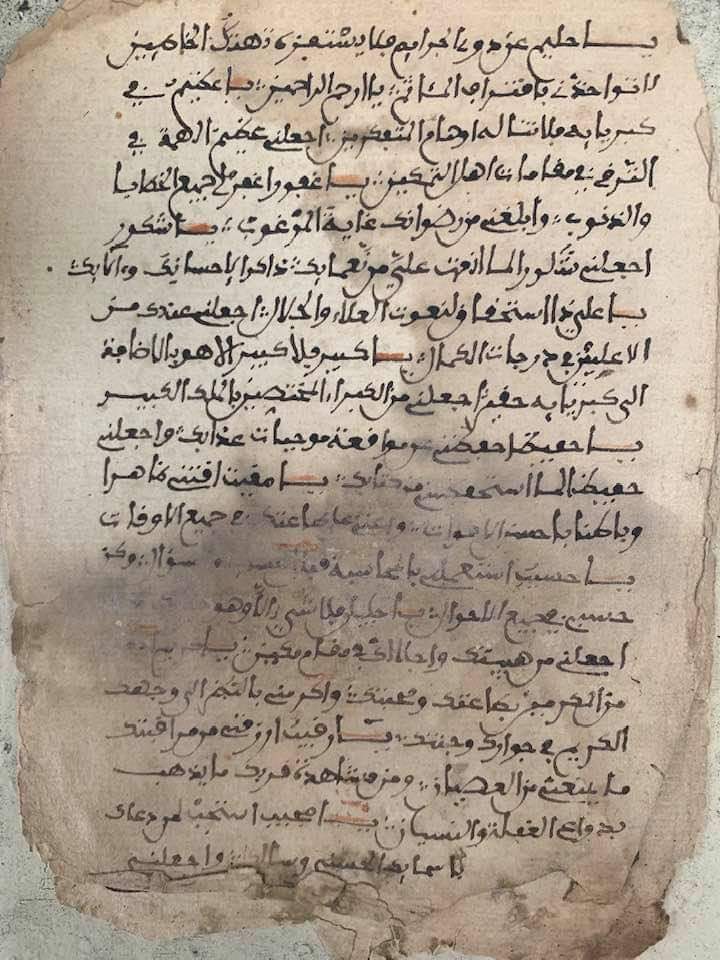 يا حليم عن ذوي الجرايم فلا يستفزه تهتك الخاطئين
لا تواخذني باقتراف المئاثم يا ارحم الراحمين يا عظيم في
كبريايه فلا تناله اوهام المتفكرين اجعلني عظيم الهمة في
الترقي في مقامات اهل التمكين يا غفور اغفر لي جميع الخطايا
والذنوب وابلغني من رضوانك غاية المرغوب يا شكور
اجعلني شكورا لما انعمت علي من نعمايك ذاكرا لإحسانك وءالايك
يا علي ذا استحقاق لنعوت العلاء والجلال اجعلني عندك من
الاعلين في درجات الكمال يا كبير فلا كبير الا هو بالاضافة
الى كبريايه حقير اجعلني من الكبراء المختصين بالملك الكبير
يا حفيظ احفظني من مواقعة موجبات عذابك واجعلني
حفيظا لما استحفظتني من كتابك يا مقيت اقتني ظاهرا
وباطنا باحسن الاقوات في جميع الاوقات
يا حسيب استعملني بالمحاسبة وكن
حسبي في جميع الاحوال يا جليل فلا شيء الا وهو
اجعلني من هيبتك واجلالك في مقام مكين يا
من الكرم واكرمني بالنظر الى وجهك
الكريم في جوارك وجنتك يا رقيب ارزقني من مراقبتك
ما يمنعني من العصيان ومن مشاهدة قربك ما يذهب
بدواعي الغفلة والنسيان يا مجيب استجب لمن دعاك
باسمايه الحسنى وسالك واجعلني